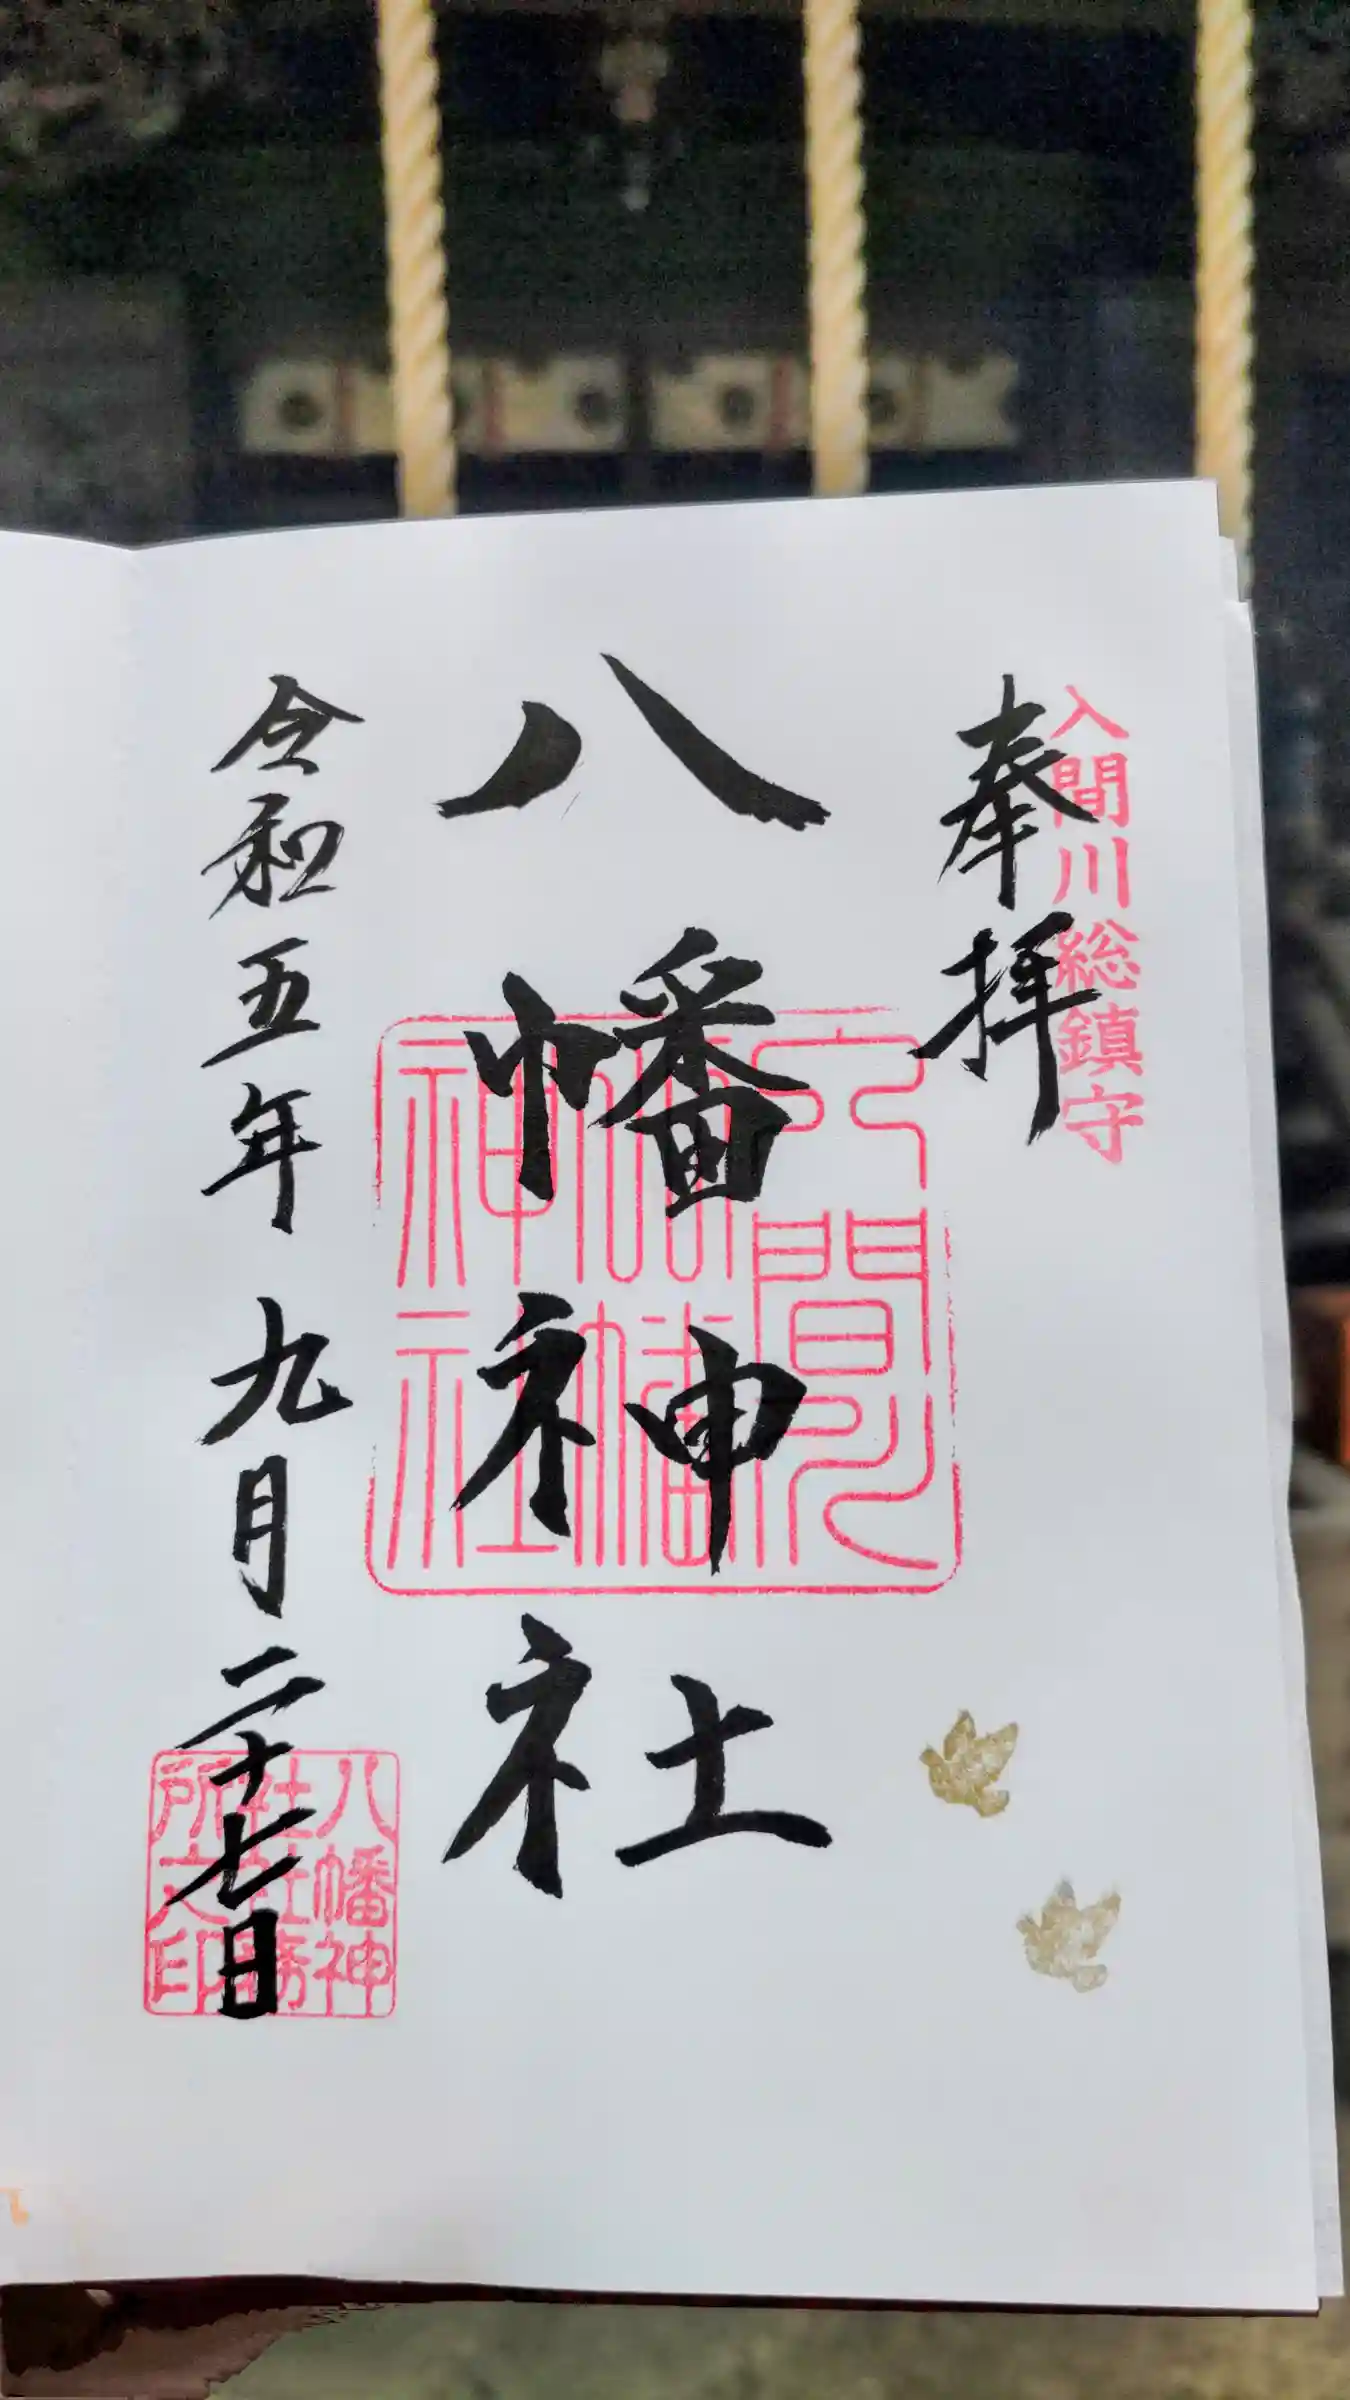 入間川総鎮守
奉拝
八幡神社
入間川
八幡
神社
令和五年九月二十七日
八幡神
社社務
所之印